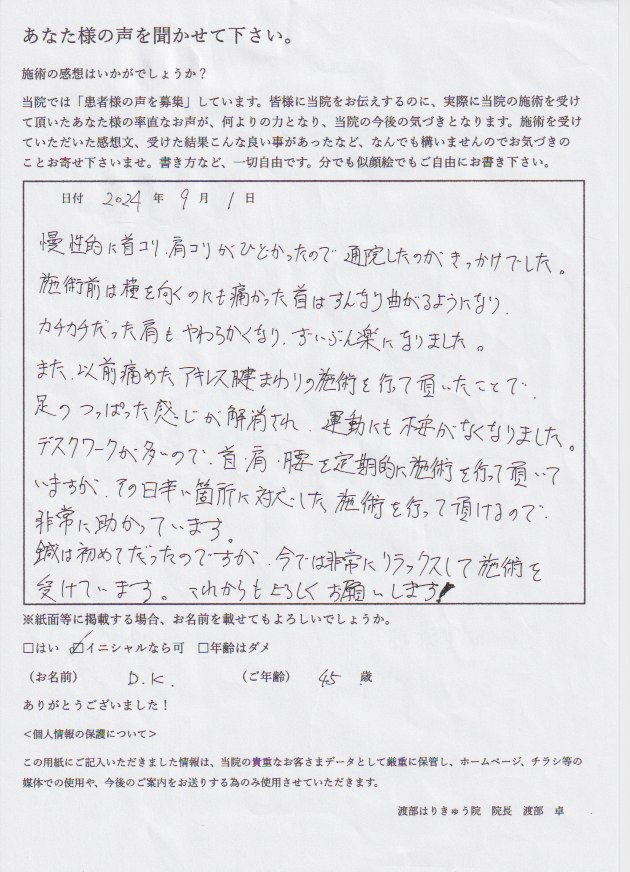 あなた様の声を聞かせて下さい。
施術の感想はいかがでしょうか？
当院では「患者様の声を募集」しています。皆様に当院をお伝えするのに、実際に当院の施術を受け
て頂いたあなた様の率直なお声が、何よりの力となり、当院の今後の気づきとなります。施術を受け
ていただいた感想文、受けた結果こんな良い事があったなど、なんでも構いませんのでお気づきの
ことお寄せ下さいませ。書き方など、一切自由です。分でも似顔絵でもご自由にお書き下さい。
日付 2024 年 9 月 1 日
慢性的に首コリ、肩コリがひどかったので通院したのがきっかけでした。
施術前は横を向くのにも痛かった首はすんなり曲がるようになり、
カチカチだった肩もやわらかくなり、ずいぶん楽になりました。
また、以前痛めたアキレス腱まわりの施術を行って頂いたことで、
足のつっぱった感じが解消され、運動にも不安がなくなりました。
デスクワークが多いので、首・肩・腰を定期的に施術を行って頂いて
いますが、その日辛い箇所に対応した施術を行って頂けるので、
非常に助かっています。
鍼は初めてだったのですが、今では非常にリラックスして施術を
受けています。これからもよろしくお願いします！
※紙面等に掲載する場合、お名前を載せてもよろしいでしょうか。
□はい ☑イニシャルなら可 □年齢はダメ
（お名前） D.K. （ご年齢） 45 歳
ありがとうございました！
＜個人情報の保護について＞
この用紙にご記入いただきました情報は、当院の貴重なお客さまデータとして厳重に保管し、ホームページ、チラシ等の
媒体での使用や、今後のご案内をお送りする為のみ使用させていただきます。
渡部はりきゅう院 院長 渡部 卓